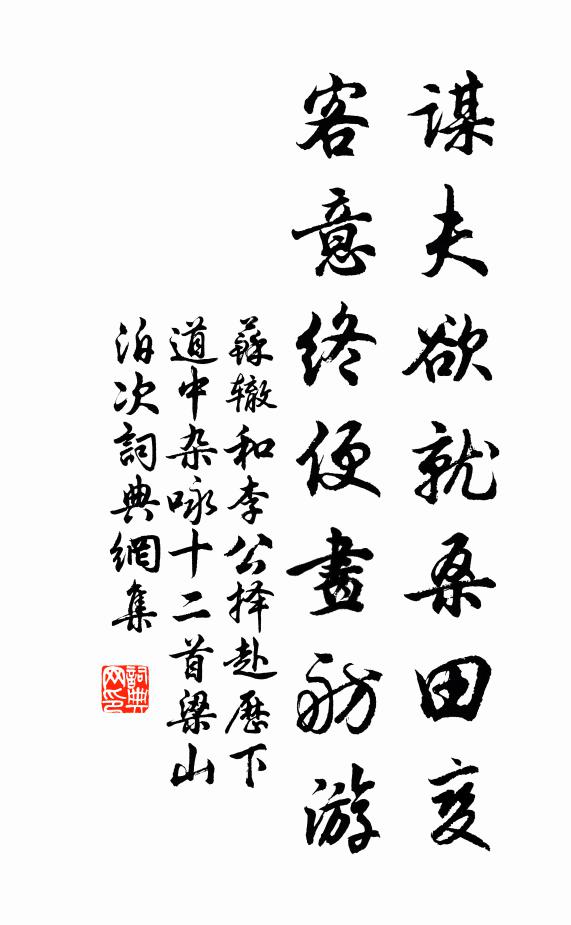 谋夫欲就桑田变
客意终便畫舫游
蘇辙和李公择赴歷下
道中杂咏十二首梁山
泊次詞典網集
詞典网印